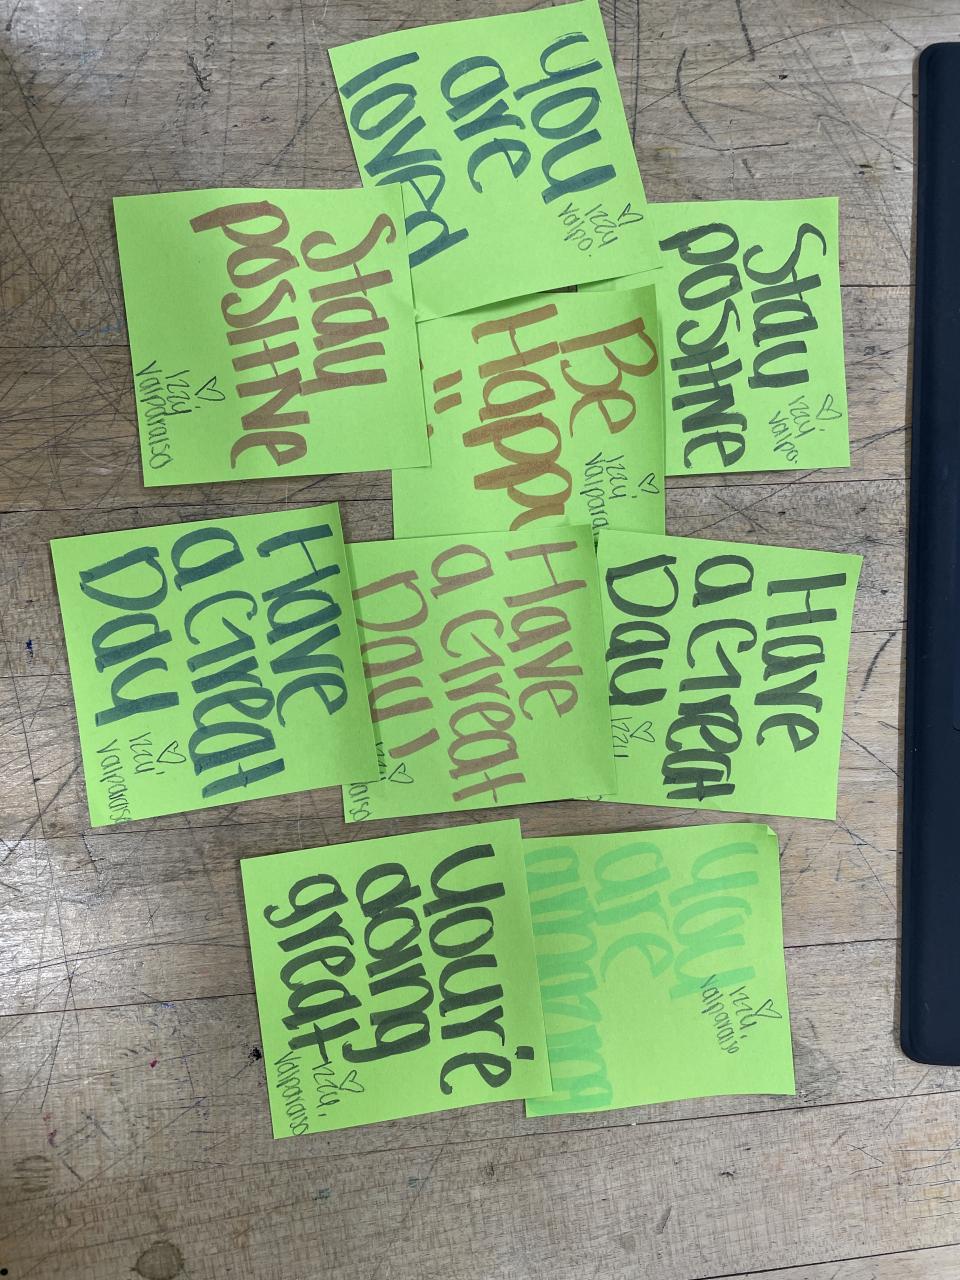 You
are
loved
♡ Izzy,
Valpo.
Stay
positive
♡ Izzy,
Valpo.
Be
Happy
♡ Izzy,
Valparaiso
Stay
positive
♡ Izzy,
Valparaiso
Have
a Great
Day
♡ Izzy,
Have
a Great
Day!
♡
Have
a Great
Day
♡ Izzy,
Valparaiso
you
are
amazing
♡ Izzy,
Valparaiso
you're
doing
great
♡ Izzy,
Valparaiso